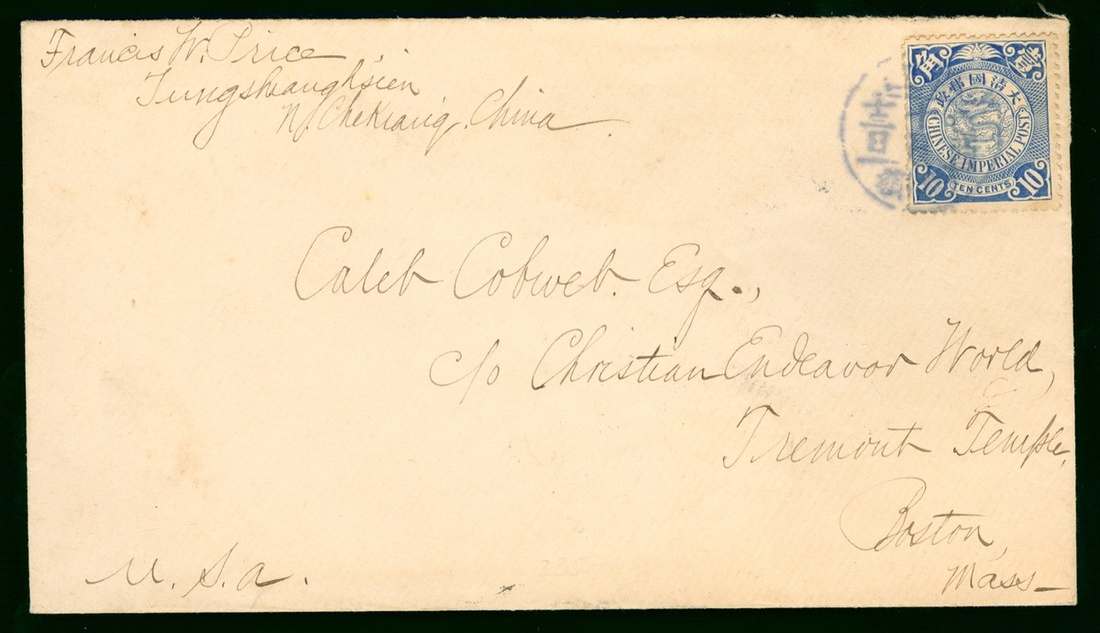 Francis W. Price,
Tungshianghsien
N. Chekiang, China.
角 壹
大清國郵政
CHINESE IMPERIAL POST
10 TEN CENTS 10
Caleb Cobweb. Esq.,
c/o Christian Endeavor World,
Tremont Temple,
Boston,
Mass-
U. S. a.